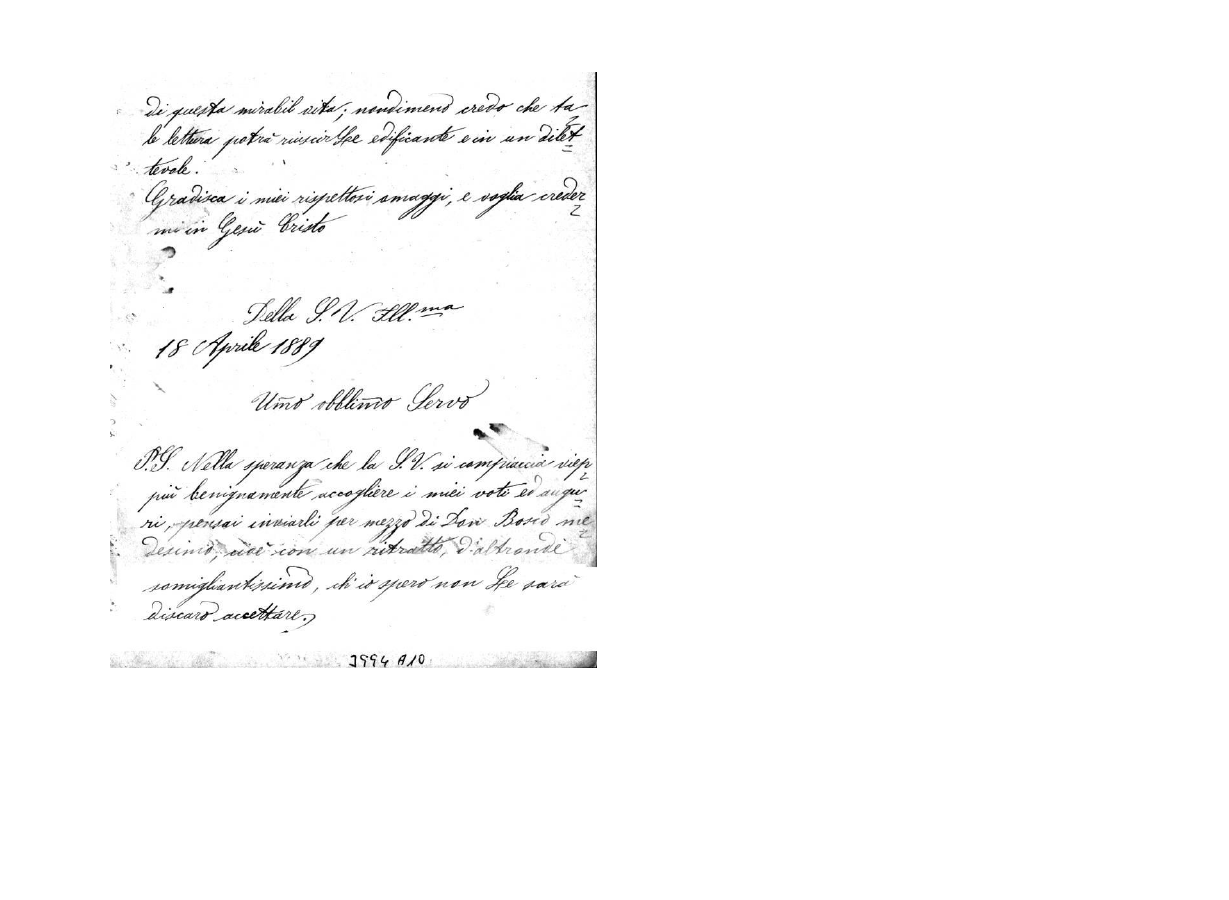 di questa mirabil vita; nondimeno credo che ta-
le lettura potrà riuscirLe edificante e in un dilet=
tevole.
Gradisca i miei rispettosi omaggi, e voglia creder
mi in Gesù Cristo
Della S. V. Ill.ma
18 Aprile 1889
Umo obblimo Servo
P.S. Nella speranza che la S.V. si compiaccia viep
più benignamente accogliere i miei voti ed augu=
ri, pensai inviarli per mezzo di Don Bosco me
desimo, cioè con un ritratto, d'altronde
somigliantissimo, ch'io spero non Le sarà
discaro accettare.
3994 A10